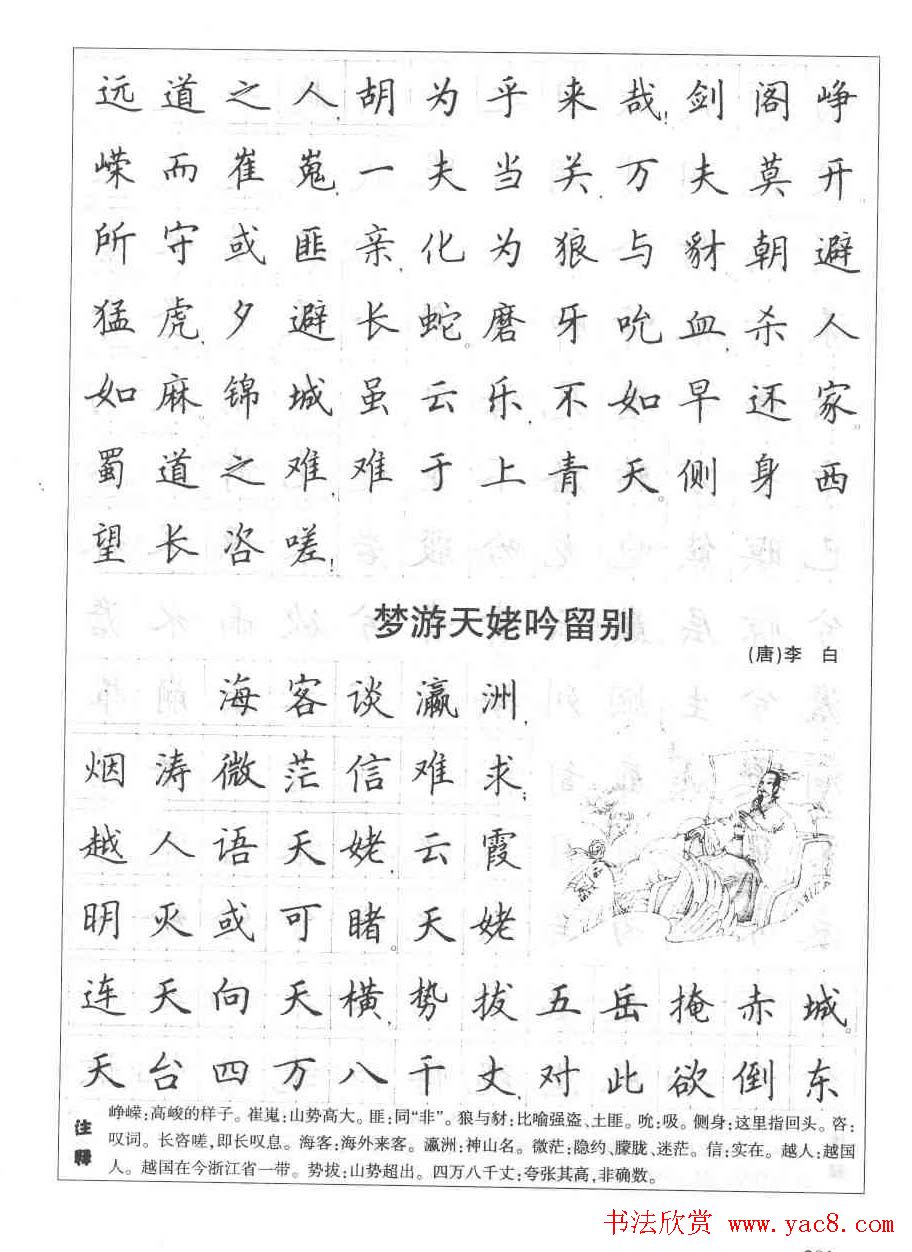 远道之人,胡为乎来哉!剑阁峥
嵘而崔嵬,一夫当关,万夫莫开
所守或匪亲,化为狼与豺,朝避
猛虎,夕避长蛇。磨牙吮血,杀人
如麻。锦城虽云乐,不如早还家。
蜀道之难,难于上青天。侧身西
望长咨嗟!
梦游天姥吟留别
(唐)李 白
海客谈瀛洲,
烟涛微茫信难求;
越人语天姥,云霞
明灭或可睹。天姥
连天向天横,势拔五岳掩赤城。
天台四万八千丈,对此欲倒东
注释
峥嵘:高峻的样子。崔嵬:山势高大。匪:同“非”。狼与豺:比喻强盗、土匪。吮:吸。侧身:这里指回头。咨:
叹词。长咨嗟,即长叹息。海客:海外来客。瀛洲:神山名。微茫:隐约、朦胧、迷茫。信:实在。越人:越国
人。越国在今浙江省一带。势拔:山势超出。四万八千丈:夸张其高,非确数。
书法欣赏 www.yac8.com